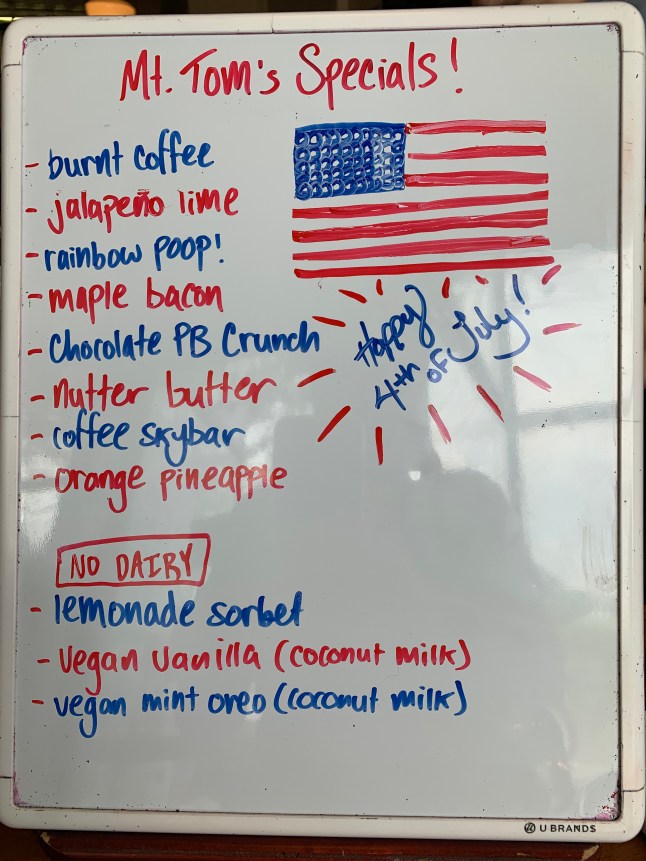 Mt. Tom's Specials!
- burnt coffee
- jalapeño lime
- rainbow poop!
- maple bacon
- Chocolate PB Crunch
- nutter butter
- coffee skybar
- orange pineapple
Happy
4th of July!
NO DAIRY
- lemonade sorbet
- vegan vanilla (coconut milk)
- vegan mint oreo (coconut milk)
U BRANDS